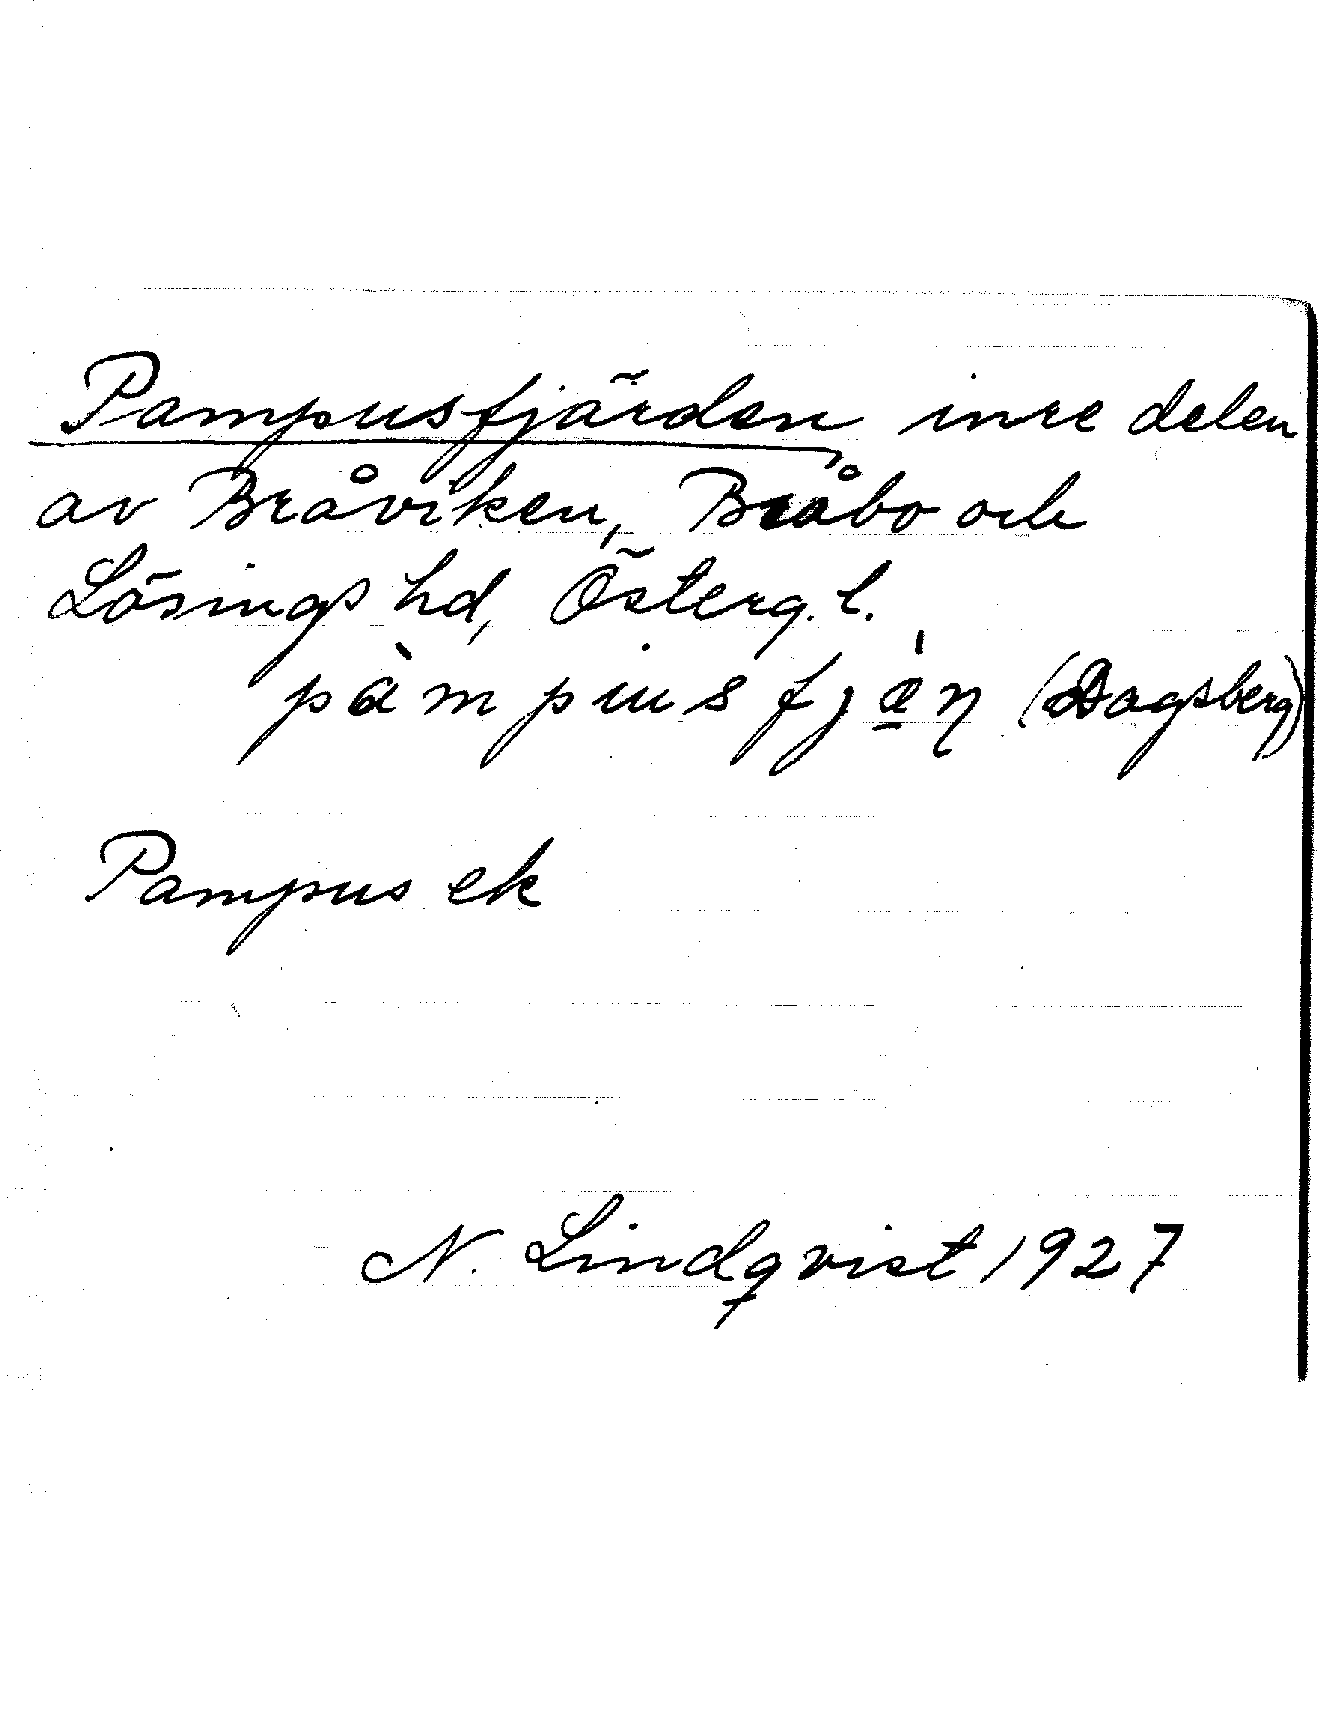 Pampusfjärden inre delen
av Bråviken, Bråbo och
Lösings hd, Österg. l.
pàmpusfjæ̠̍ɳ (Dagsberg)
Pampus ek
N. Lindqvist 1927